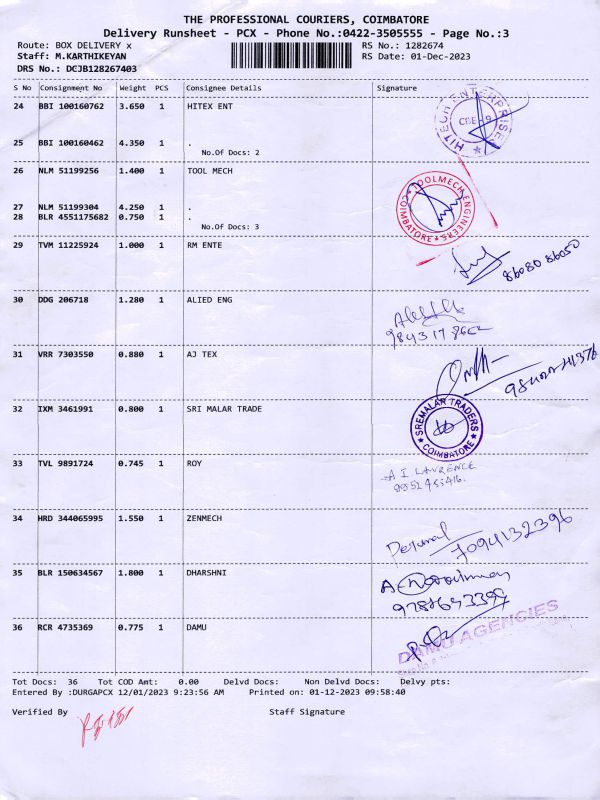 THE PROFESSIONAL COURIERS, COIMBATORE
Delivery Runsheet - PCX - Phone No.:0422-3505555 - Page No.:3
Route: BOX DELIVERY x
RS No.: 1282674
Staff: M.KARTHIKEYAN
RS Date: 01-Dec-2023
DRS No.: DCJB128267403
S No Consignment No Weight PCS Consignee Details Signature
24 BBI 100160762 3.650 1 HITEX ENT
HITECH ENTERPRISES
CBE-9
25 BBI 100160462 4.350 1 .
No.Of Docs: 2
26 NLM 51199256 1.400 1 TOOL MECH
TOOLMECH ENGINEERS
COIMBATORE
27 NLM 51199304 4.250 1 .
28 BLR 4551175682 0.750 1 .
No.Of Docs: 3
29 TVM 11225924 1.000 1 RM ENTE
86080 86050
30 DDG 206718 1.280 1 ALIED ENG
31 VRR 7303550 0.880 1 AJ TEX
32 IXM 3461991 0.800 1 SRI MALAR TRADE
SREMALAR TRADERS
COIMBATORE
33 TVL 9891724 0.745 1 ROY
A I. LAWRENCE
34 HRD 344065995 1.550 1 ZENMECH
Perumal
7094132396
35 BLR 150634567 1.800 1 DHARSHNI
36 RCR 4735369 0.775 1 DAMU
DAMU AGENCIES
Tot Docs: 36 Tot COD Amt: 0.00 Delvd Docs: Non Delvd Docs: Delvy pts:
Entered By :DURGAPCX 12/01/2023 9:23:56 AM Printed on: 01-12-2023 09:58:40
Verified By Staff Signature